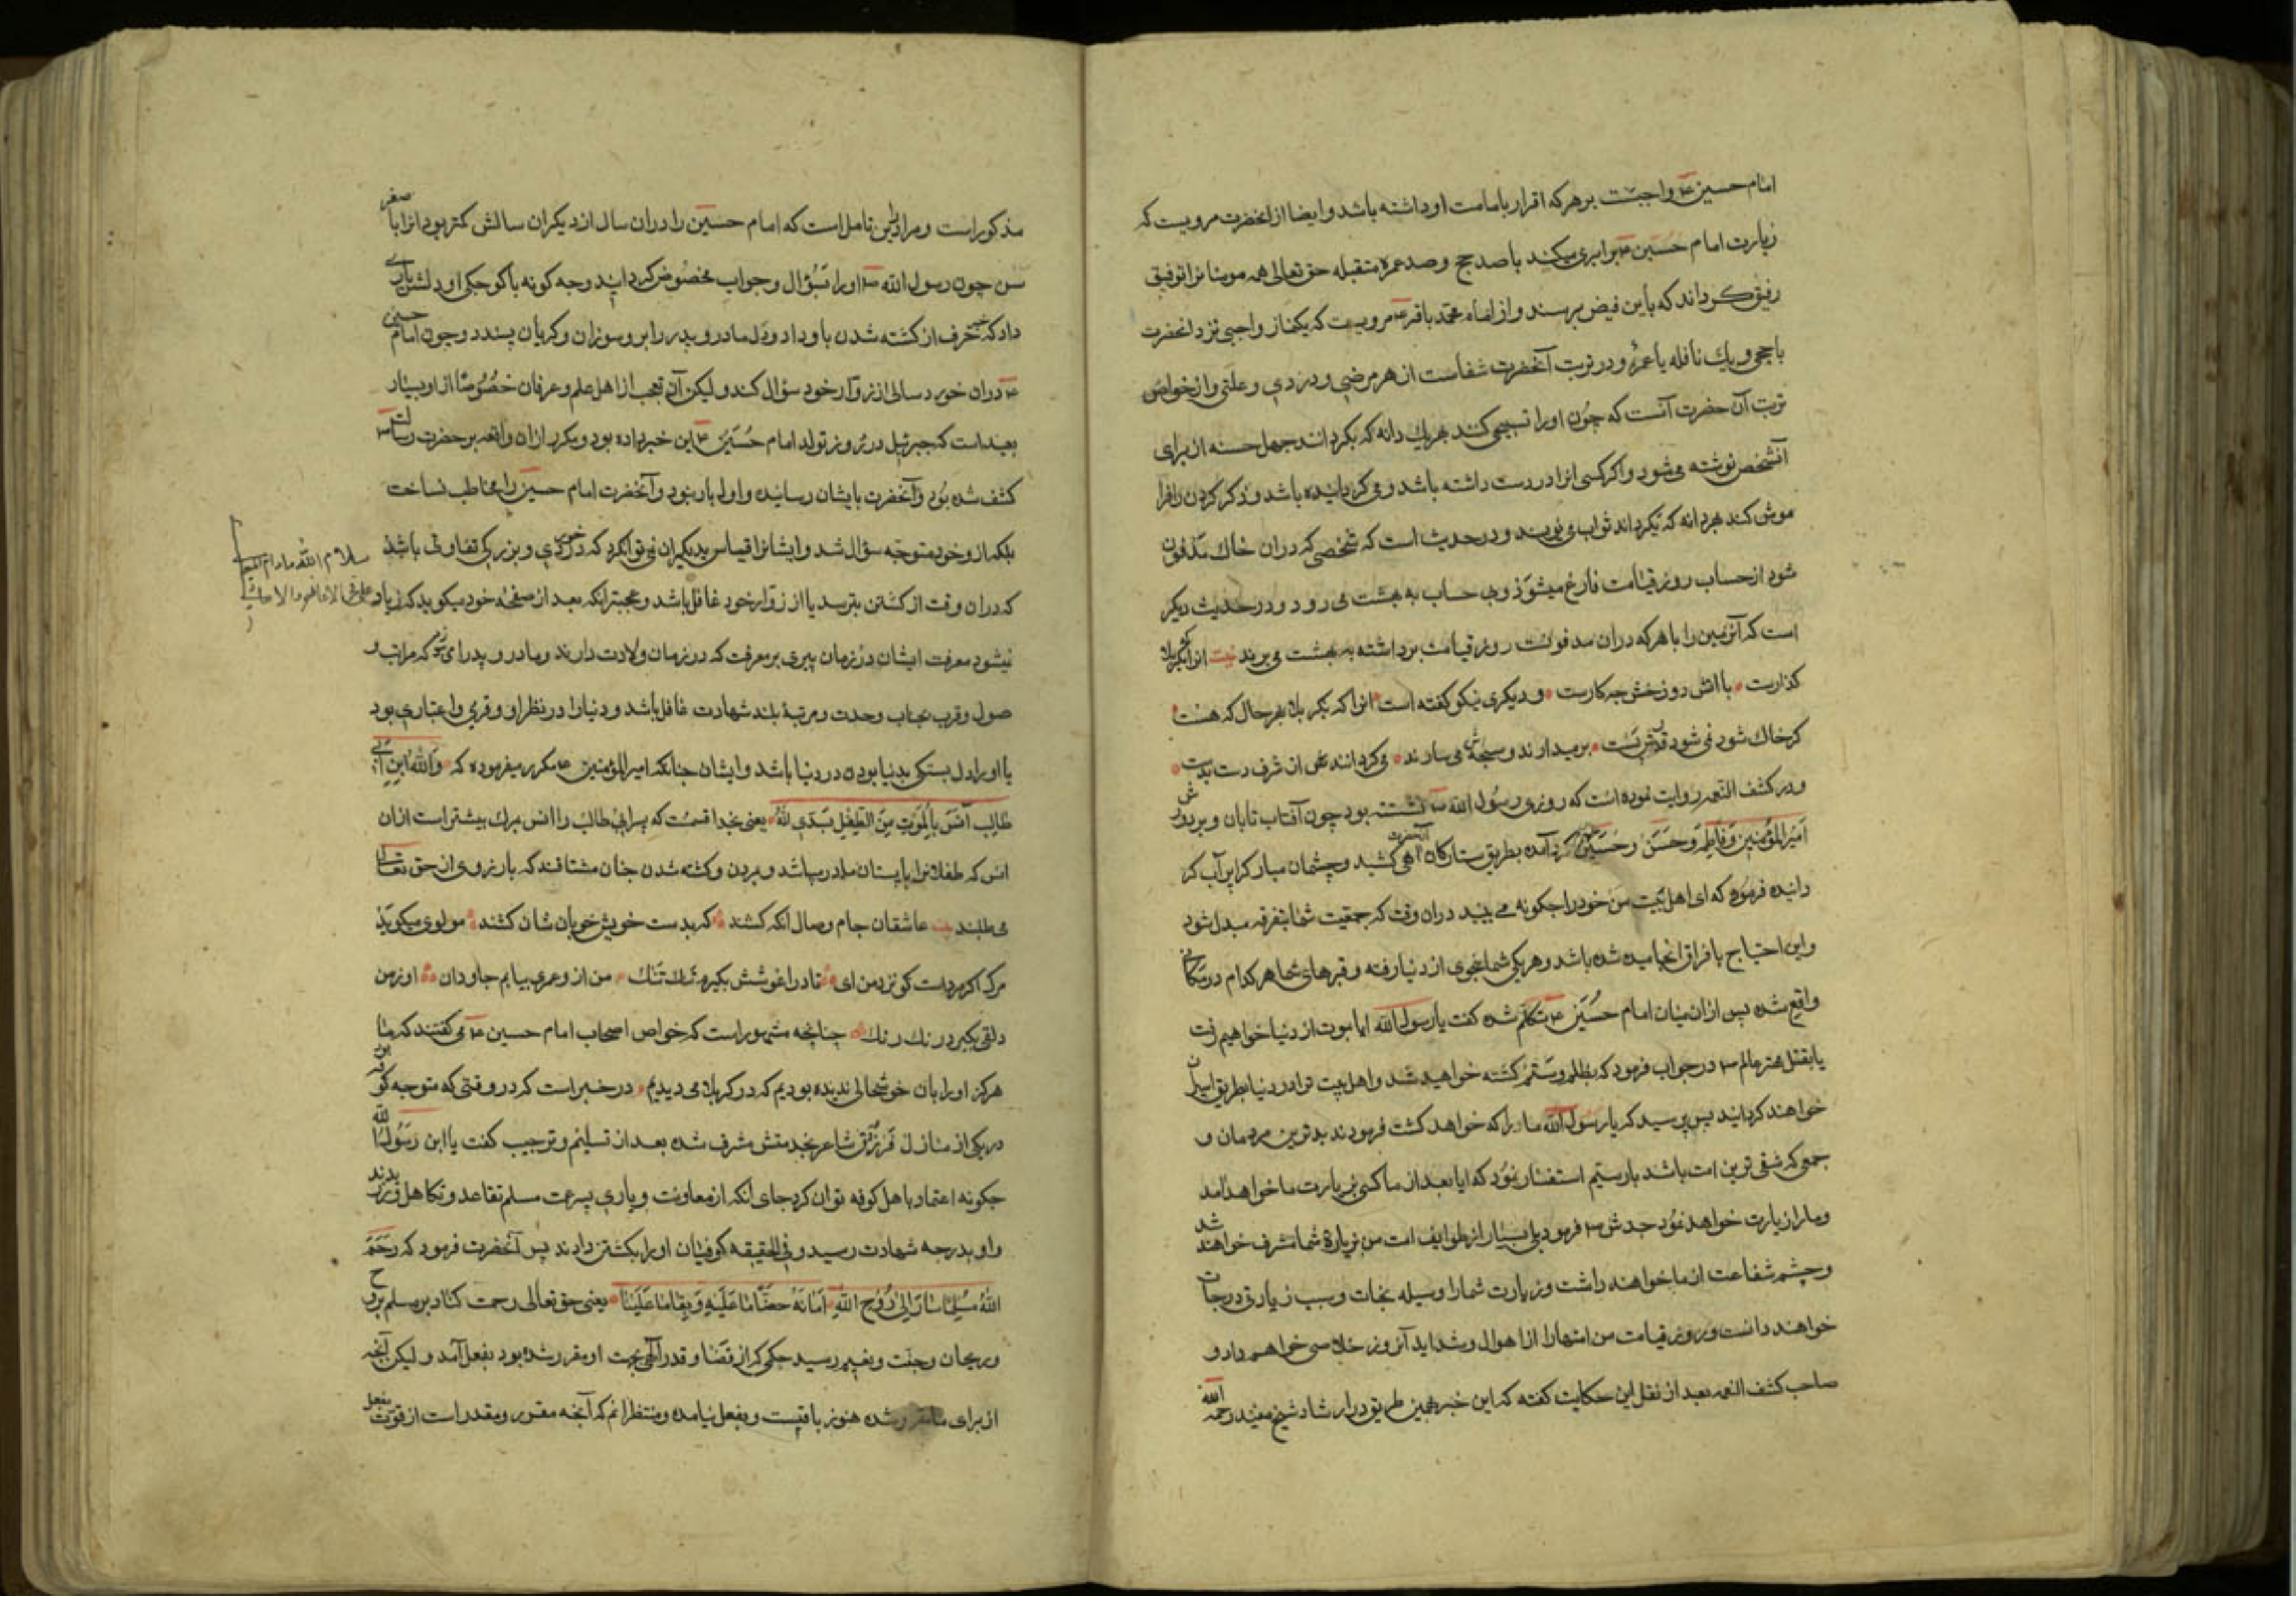 امام حسین ع واجبست بر هر که اقرار بامامت او داشته باشد و ایضا از انحضرت مرویست که
زیارت امام حسین ع برابری میکند با صد حج و صد عمره متقبله حق تعالی همه مومنانرا توفیق
رفیق کرداند که باین فیض برسند و از امام محمد باقر ع مرویست که یکنماز واجبی نزد انحضرت
با حجی و یک نافله با عمره و در تربت آنحضرت شفاست از هر مرضی و دردی و علتی و از خواص
تربت آن حضرت آنست که چون اورا تسبیحی کنند هر یک دانه که بکردانند چهل حسنه از برای
آنشخص نوشته می شود و اکر کسی انرا در دست داشته باشد و می کردانیده باشد و ذکر کردن را فرا
موش کند هر دانه که بکرداند ثواب می نویسند و در حدیث است که شخصی که در ان خاک مدفون
شود از حساب روز قیامت فارغ میشود و بی حساب به بهشت می رود و در حدیث دیکر
است که آنزمین را با هر که در ان مدفونست روز قیامت برداشته به بهشت می برند بیت انرا که بکربلا
کذارست با اتش دوزخش چه کارست و دیکری نیکو کفته است انرا که بکربلا بهر حال که هست
کر خاک شود نمی شود قدرش پست برمیدارند و سبحه اش می سازند می کردانندش از شرف دست بدست
و در کشف الغمه روایت نموده است که روزی رسول الله ص نشسته بود چون آفتاب تابان و بر دورش
امیر المؤمنین و فاطمه و حسن و حسین کرد آمده بطریق ستارکان آنحضرت آهی کشید و چشمان مبارک را پر آب کر
دانیده فرمود که ای اهل بیت من خود را چکونه می بینید در ان وقت که جمعیت شما بتفرقه مبدل شود
و این احتیاج بافراق انجامیده شده باشد و هر یکی شما بنحوی از دنیا رفته و قبرهای شما هر کدام در مکانی
واقع شده پس از ان میان امام حسین ع متکلم شده کفت یا رسول الله ایا بموت از دنیا خواهیم رفت
یا بقتل مهتر عالم ص در جواب فرمود که بظلم و ستم کشته خواهید شد و اهل بیت ترا در دنیا بطریق اسیران
خواهند کردانید پس پرسید که یا رسول الله ما را که خواهد کشت فرمودند بدترین مردمان و
جمعی که شقی ترین امت باشد بار سیم استفسار نمود که ایا بعد از ما کسی بزیارت ما خواهد آمد
و ما را زیارت خواهد نمود جدش ص فرمود بلی بسیار از طوایف امت من بزیارة شما مشرف خواهند شد
و چشم شفاعت از ما خواهند داشت و زیارت شما را وسیله نجات و سبب زیادتی درجات
خواهند دانست و روز قیامت من انهارا از اهوال و شداید آنروز خلاصی خواهم داد و
صاحب کشف الغمه بعد از نقل این حکایت کفته که این خبر بهمین طریق در ارشاد شیخ مفید رحمه الله
مذکور است و مرا در این تامل است که امام حسین را در ان سال از دیکران سالش کمتر بود انرا با صغر
سن چون رسول الله ص اورا بسؤال و جواب مخصوص کردانید و چه کونه با کوچکی او دلش یاری
داد که خبر حرف از کشته شدن باو داد و دل مادر و پدر را بر او سوزان و کریان پسندد و چون امام حسین
ع در ان خورد سالی از زوار خود سؤال کند و لیکن آن تعجب از اهل علم و عرفان خصوصا از او بسیار
بعید است که جبرئیل در روز تولد امام حسین ع این خبر داده بود و مکرر از ان واقعه بر حضرت رسالت ص
کشف شده بود و آنحضرت بایشان رسانیده و اول بار نبود و آنحضرت امام حسین را مخاطب نساخت
بلکه از و خود متوجه سؤال شد و ایشانرا قیاس بدیکران نمی توان کرد که در خوردی و بزرکی تفاوتی باشد
که در ان وقت از کشتن بترسد یا از زوار خود غافل باشد و عجبتر انکه بعد از صفحه خود میکوید که زیاد
نیشود معرفت ایشان در زمان پیری بر معرفت که در زمان ولادت دارند و مادر و پدر ای که مراتب و
صول و قرب بجناب وحدت و مرتبهٔ بلند شهادت غافل باشد و دنیا را در نظر او وقری و اعتباری بود
یا او را دل بستکی بدنیا بودن در دنیا باشد و ایشان چنانکه امیر المؤمنین ع مکرر میفرموده که والله ابن ابی
طالب آنس بالموت من الطفل بثدی امه یعنی بخدا قسمت که پسر ابی طالب را انس بمرک بیشتر است از ان
انس که طفلانرا با پستان مادر میباشد و بمردن و کشته شدن چنان مشتاقند که بارزوی از حق تعالی
می طلبند بیت عاشقان جام وصال انکه کشند که بدست خویش خوبان شان کشند مولوی میکوید
مرک اکر مردست کو نزد من ای تا در آغوشش بکیرم تنک تنک من از و عمری بیابم جاودان او ز من
دلقی بکیرد رنک رنک چنانچه مشهور است که خواص اصحاب امام حسین ع می کفتند که ما
هرکز او را بان خوشحالی ندیده بودیم که در کربلا می دیدیم در خبر است که در وقتی که متوجه کوفه بود
در یکی از منازل فرزدق شاعر بخدمتش مشرف شده بعد از تسلیم و ترحیب کفت یا ابن رسول الله
چکونه اعتماد باهل کوفه توان کرد جای انکه از معاونت و یاری پسر عمت مسلم تقاعد و تکاهل ورزیدند
و او بدرجه شهادت رسید و فی الحقیقه کوفیان اورا بکشتن دادند پس آنحضرت فرمود که رحم
الله مسلما صار الی روح الله امانه قضی ما علیه و بقی ما علینا یعنی حق تعالی رحمت کناد بر مسلم بروح
و ریحان و جنت و نعیم رسید حکمی که از قضا و قدر آلهی بجهت او مقرر شده بود بفعل آمد و لیکن آنچه
از برای ما مقرر شده هنوز باقیست و بفعل نیامده و منتظرانم که آنچه مقرر و مقدر است از قوت بفعل
سلام الله مادام